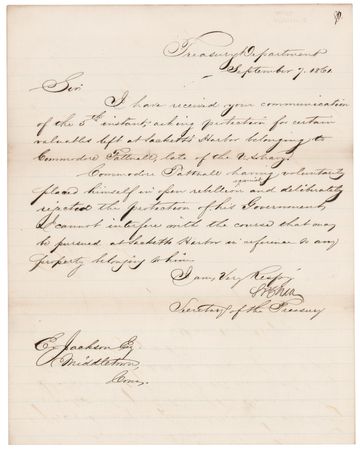 Treasury Department
September 7. 1861.
Sir
I have received your communication
of the 5th instant asking protection for certain
valuables left at Sacketts Harbor belonging to
Commodore Tattnall, late of the U.S. Navy.
Commodore Tattnall having voluntarily
placed himself in open rebellion and deliberately
rejected the protection of his Government,
I cannot interfere with the course that may
be pursued at Sacketts Harbor in reference to any
property belonging to him.
I am, Very Respy
S P Chase
Secretary of the Treasury
E. Jackson Esq
Middletown,
Conn.